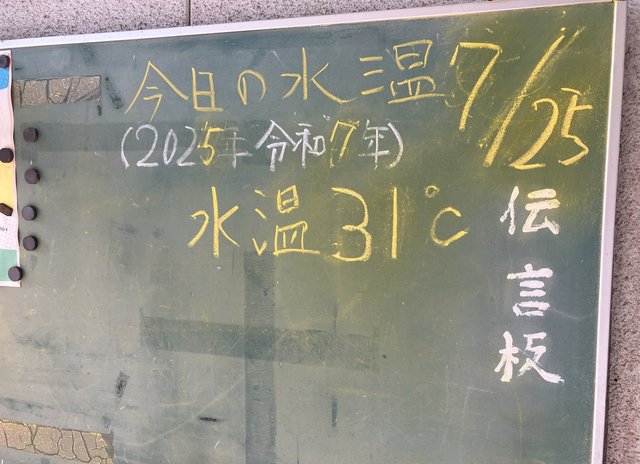 今日の水温 7/25
(2025年 令和7年)
水温31℃
伝言板